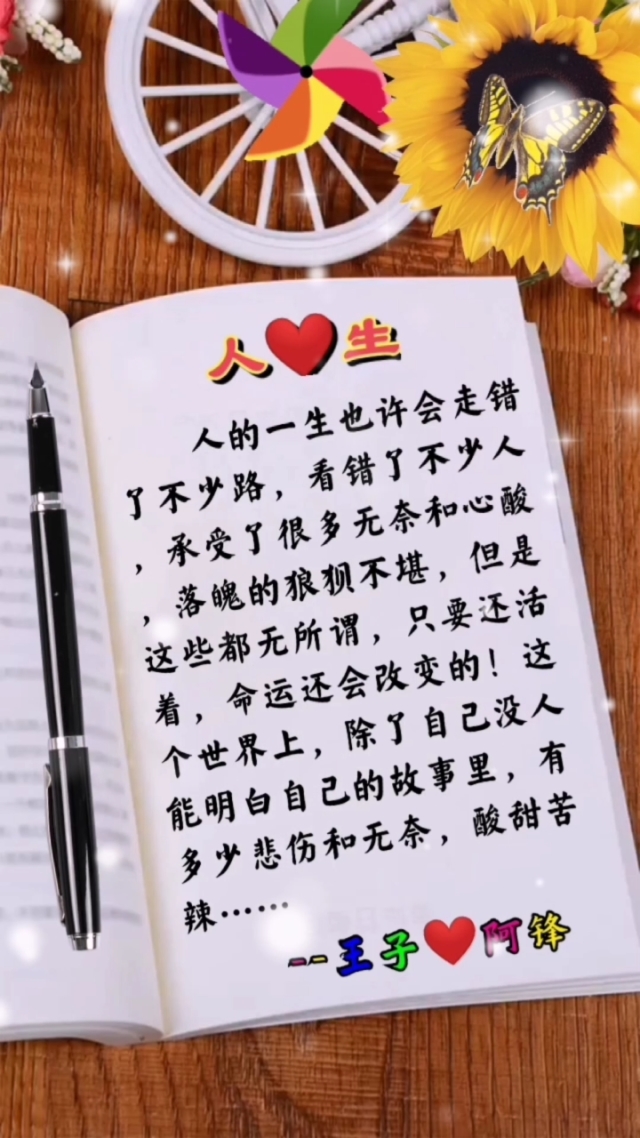 人❤生
人的一生也许会走错
了不少路，看错了不少人
，承受了很多无奈和心酸
，落魄的狼狈不堪，但是
这些都无所谓，只要还活
着，命运还会改变的！这
个世界上，除了自己没人
能明白自己的故事里，有
多少悲伤和无奈，酸甜苦
辣……
--王子❤阿锋